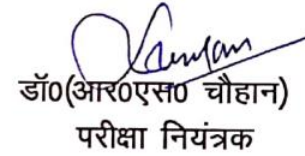 डॉ0(आर0एस0 चौहान)
परीक्षा नियंत्रक